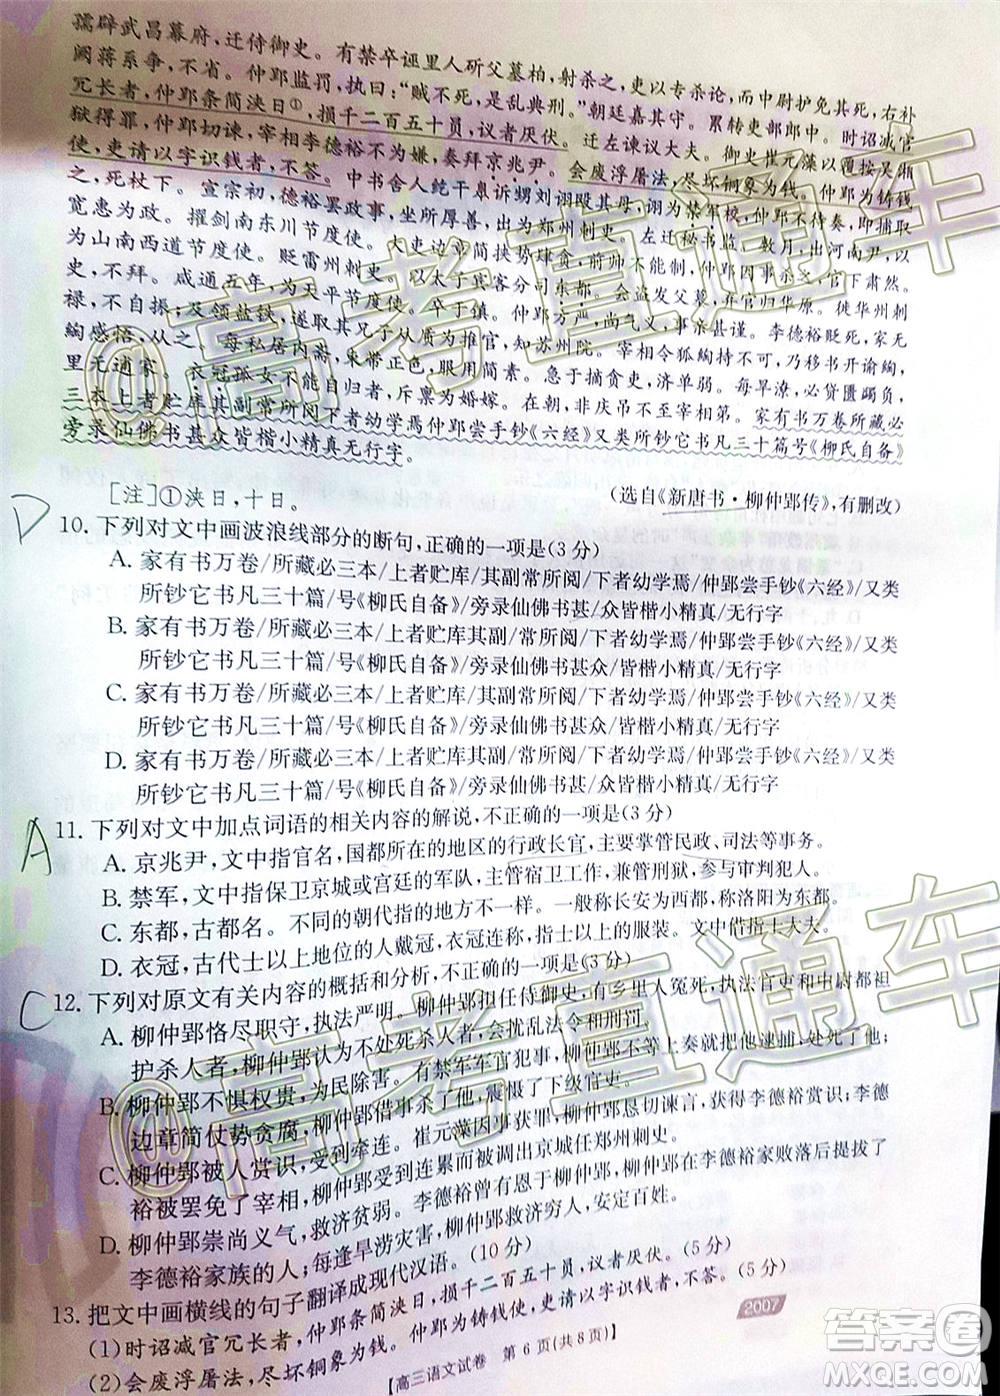 孺辟武昌幕府，迁侍御史。有禁卒诬里人斫父墓柏，射杀之，吏以专杀论，而中尉护免其死，右补
阙蒋系争，不省。仲郢监罚，执曰："贼不死，是乱典刑。"朝廷嘉其守。累转吏部郎中。时诏减官
冗长者，仲郢条简浃日①，损千二百五十员，议者厌伏。迁左谏议大夫。御史崔元藻以覆按吴湘
狱得罪，仲郢切谏，宰相李德裕不为嫌，奏拜京兆尹。会废浮屠法，尽坏铜象为钱。仲郢为铸钱
使，吏请以字识钱者，不答。中书舍人纥干臮诉甥刘诩殴其母，诩为禁军校，仲郢不待奏，即捕取
之，死杖下。宣宗初，德裕罢政事，坐所厚善，出为郑州刺史。左迁秘书监。数月，出河南尹，以
宽惠为政。擢剑南东川节度使。大吏边章简挟势肆贪，前帅不能制，仲郢因事杀之，官下肃然。
为山南西道节度使。贬雷州刺史。以太子宾客分司东都。会盗发父墓，弃官归华原。徙华州刺
史，不拜。咸通五年，为天平节度使，卒于镇。仲郢方严，尚气义，事亲甚谨。李德裕贬死，家无
禄，不自振；及领盐铁，遂取其兄子从质为推官，知苏州院。宰相令狐绹持不可，乃移书开谕绹，
绹感悟，从之。每私居内斋，束带正色，服用简素。急于摘贪吏，济单弱。每旱潦，必贷匮蠲负，
里无逋家。衣冠孤女不能自归者，斥禀为婚嫁。在朝，非庆吊不至宰相第。家有书万卷所藏必
三本上者贮库其副常所阅下者幼学焉仲郢尝手钞《六经》又类所钞它书凡三十篇号《柳氏自备》
旁录仙佛书甚众皆楷小精真无行字。
（选自《新唐书·柳仲郢传》，有删改）
[注]①浃日，十日。
D
10. 下列对文中画波浪线部分的断句，正确的一项是(3分)
A. 家有书万卷/所藏必三本/上者贮库/其副常所阅/下者幼学焉/仲郢尝手钞《六经》/又类
所钞它书凡三十篇/号《柳氏自备》/旁录仙佛书甚/众皆楷小精真/无行字
B. 家有书万卷/所藏必三本/上者贮库其副/常所阅/下者幼学焉/仲郢尝手钞《六经》/又类
所钞它书凡三十篇/号《柳氏自备》/旁录仙佛书甚众/皆楷小精真/无行字
C. 家有书万卷/所藏必三本/上者贮库其副/常所阅/下者幼学焉/仲郢尝手钞《六经》/又类
所钞它书凡三十篇/号《柳氏自备》/旁录仙佛书甚众/皆楷小精真/无行字
D. 家有书万卷/所藏必三本/上者贮库/其副常所阅/下者幼学焉/仲郢尝手钞《六经》/又类
所钞它书凡三十篇/号《柳氏自备》/旁录仙佛书甚众/皆楷小精真/无行字
A
11. 下列对文中加点词语的相关内容的解说，不正确的一项是(3分)
A. 京兆尹，文中指官名，国都所在的地区的行政长官，主要掌管民政、司法等事务。
B. 禁军，文中指保卫京城或宫廷的军队，主管宿卫工作，兼管刑狱，参与审判犯人。
C. 东都，古都名。不同的朝代指的地方不一样。一般称长安为西都，称洛阳为东都。
D. 衣冠，古代士以上地位的人戴冠，衣冠连称，指士以上的服装。文中借指士大夫。
C
12. 下列对原文有关内容的概括和分析，不正确的一项是(3分)
A. 柳仲郢恪尽职守，执法严明。柳仲郢担任侍御史时，有乡里人冤死，右补阙和中尉都袒
护杀人者，柳仲郢认为不处死杀人者，会扰乱法令和刑罚。
B. 柳仲郢不惧权贵，为民除害。任京兆尹时，有禁军军官犯罪，柳仲郢不等上奏就把他逮捕、处死；
边章简仗势贪腐，柳仲郢借事杀了他，震慑了下级官吏。
C. 柳仲郢被人赏识，受到牵连。崔元藻因事获罪，柳仲郢恳切谏言，获得李德裕赏识；李德
裕被罢免了宰相，柳仲郢受到牵连，离开京城任郑州刺史。
D. 柳仲郢崇尚义气，救济贫弱。李德裕曾有恩于柳仲郢，柳仲郢在李德裕家败落后提拔了
李德裕家族的人；每逢旱涝灾害，柳仲郢救济穷困，安定百姓。
13. 把文中画横线的句子翻译成现代汉语。(10分)
(1)时诏减官冗长者，仲郢条简浃日，损千二百五十员，议者厌伏。(5分)
(2)会废浮屠法，尽坏铜象为钱。仲郢为铸钱使，吏请以字识钱者，不答。(5分)
【高三语文试卷 第6页(共8页)】
2007
@高考直通车
@高考直通车
答案圈
MXQE.COM